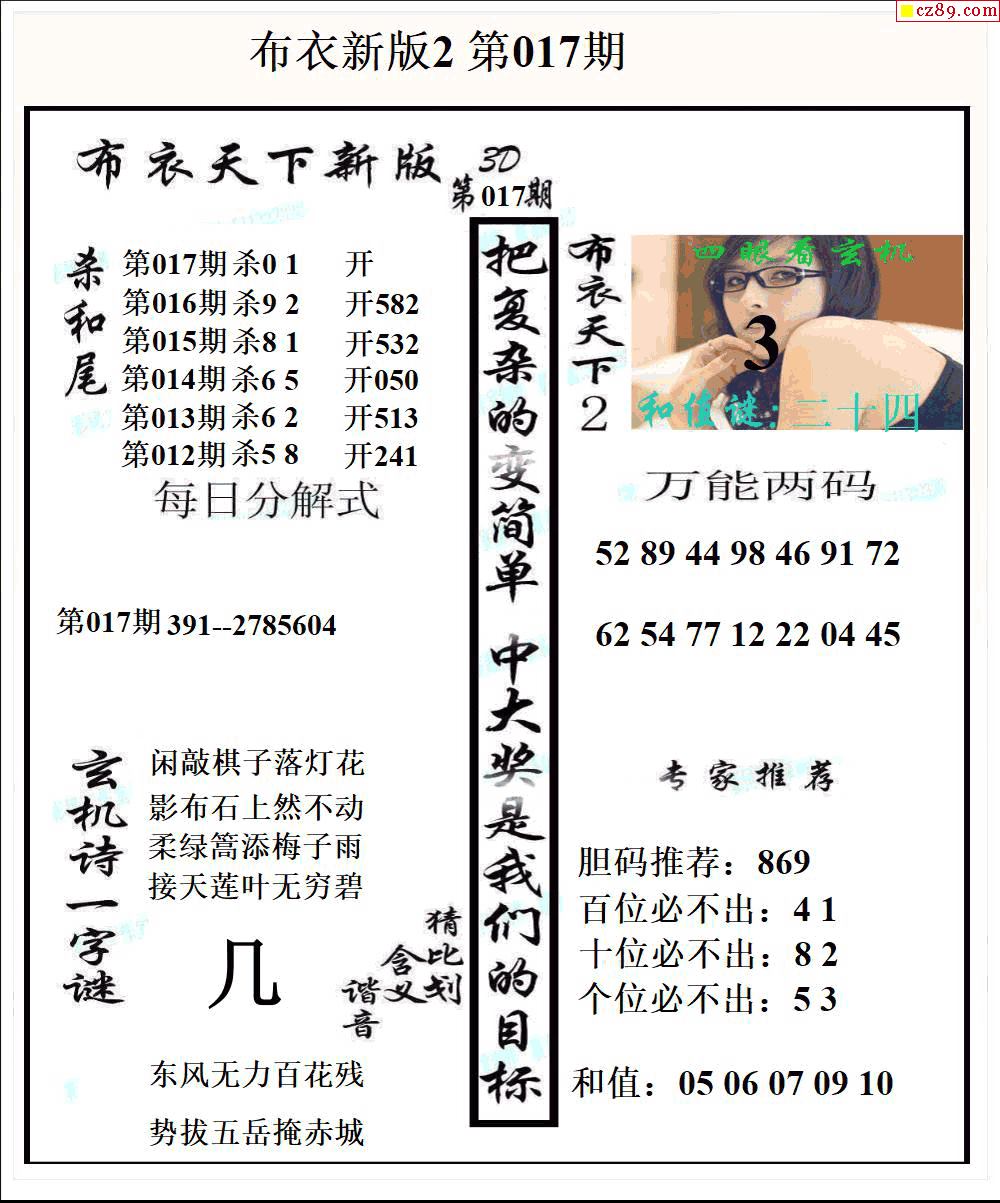 cz89.com
布衣新版2 第017期
布衣天下新版 3D
第017期
杀和尾
第017期 杀0 1 开
第016期 杀9 2 开582
第015期 杀8 1 开532
第014期 杀6 5 开050
第013期 杀6 2 开513
第012期 杀5 8 开241
每日分解式
第017期 391--2785604
玄机诗一字谜
闲敲棋子落灯花
影布石上然不动
柔绿篙添梅子雨
接天莲叶无穷碧
几
猜比划
含义
谐音
东风无力百花残
势拔五岳掩赤城
把复杂的变简单 中大奖是我们的目标
布衣天下2
四眼看玄机
3
和值谜:二十四
万能两码
52 89 44 98 46 91 72
62 54 77 12 22 04 45
专家推荐
胆码推荐：869
百位必不出：4 1
十位必不出：8 2
个位必不出：5 3
和值：05 06 07 09 10